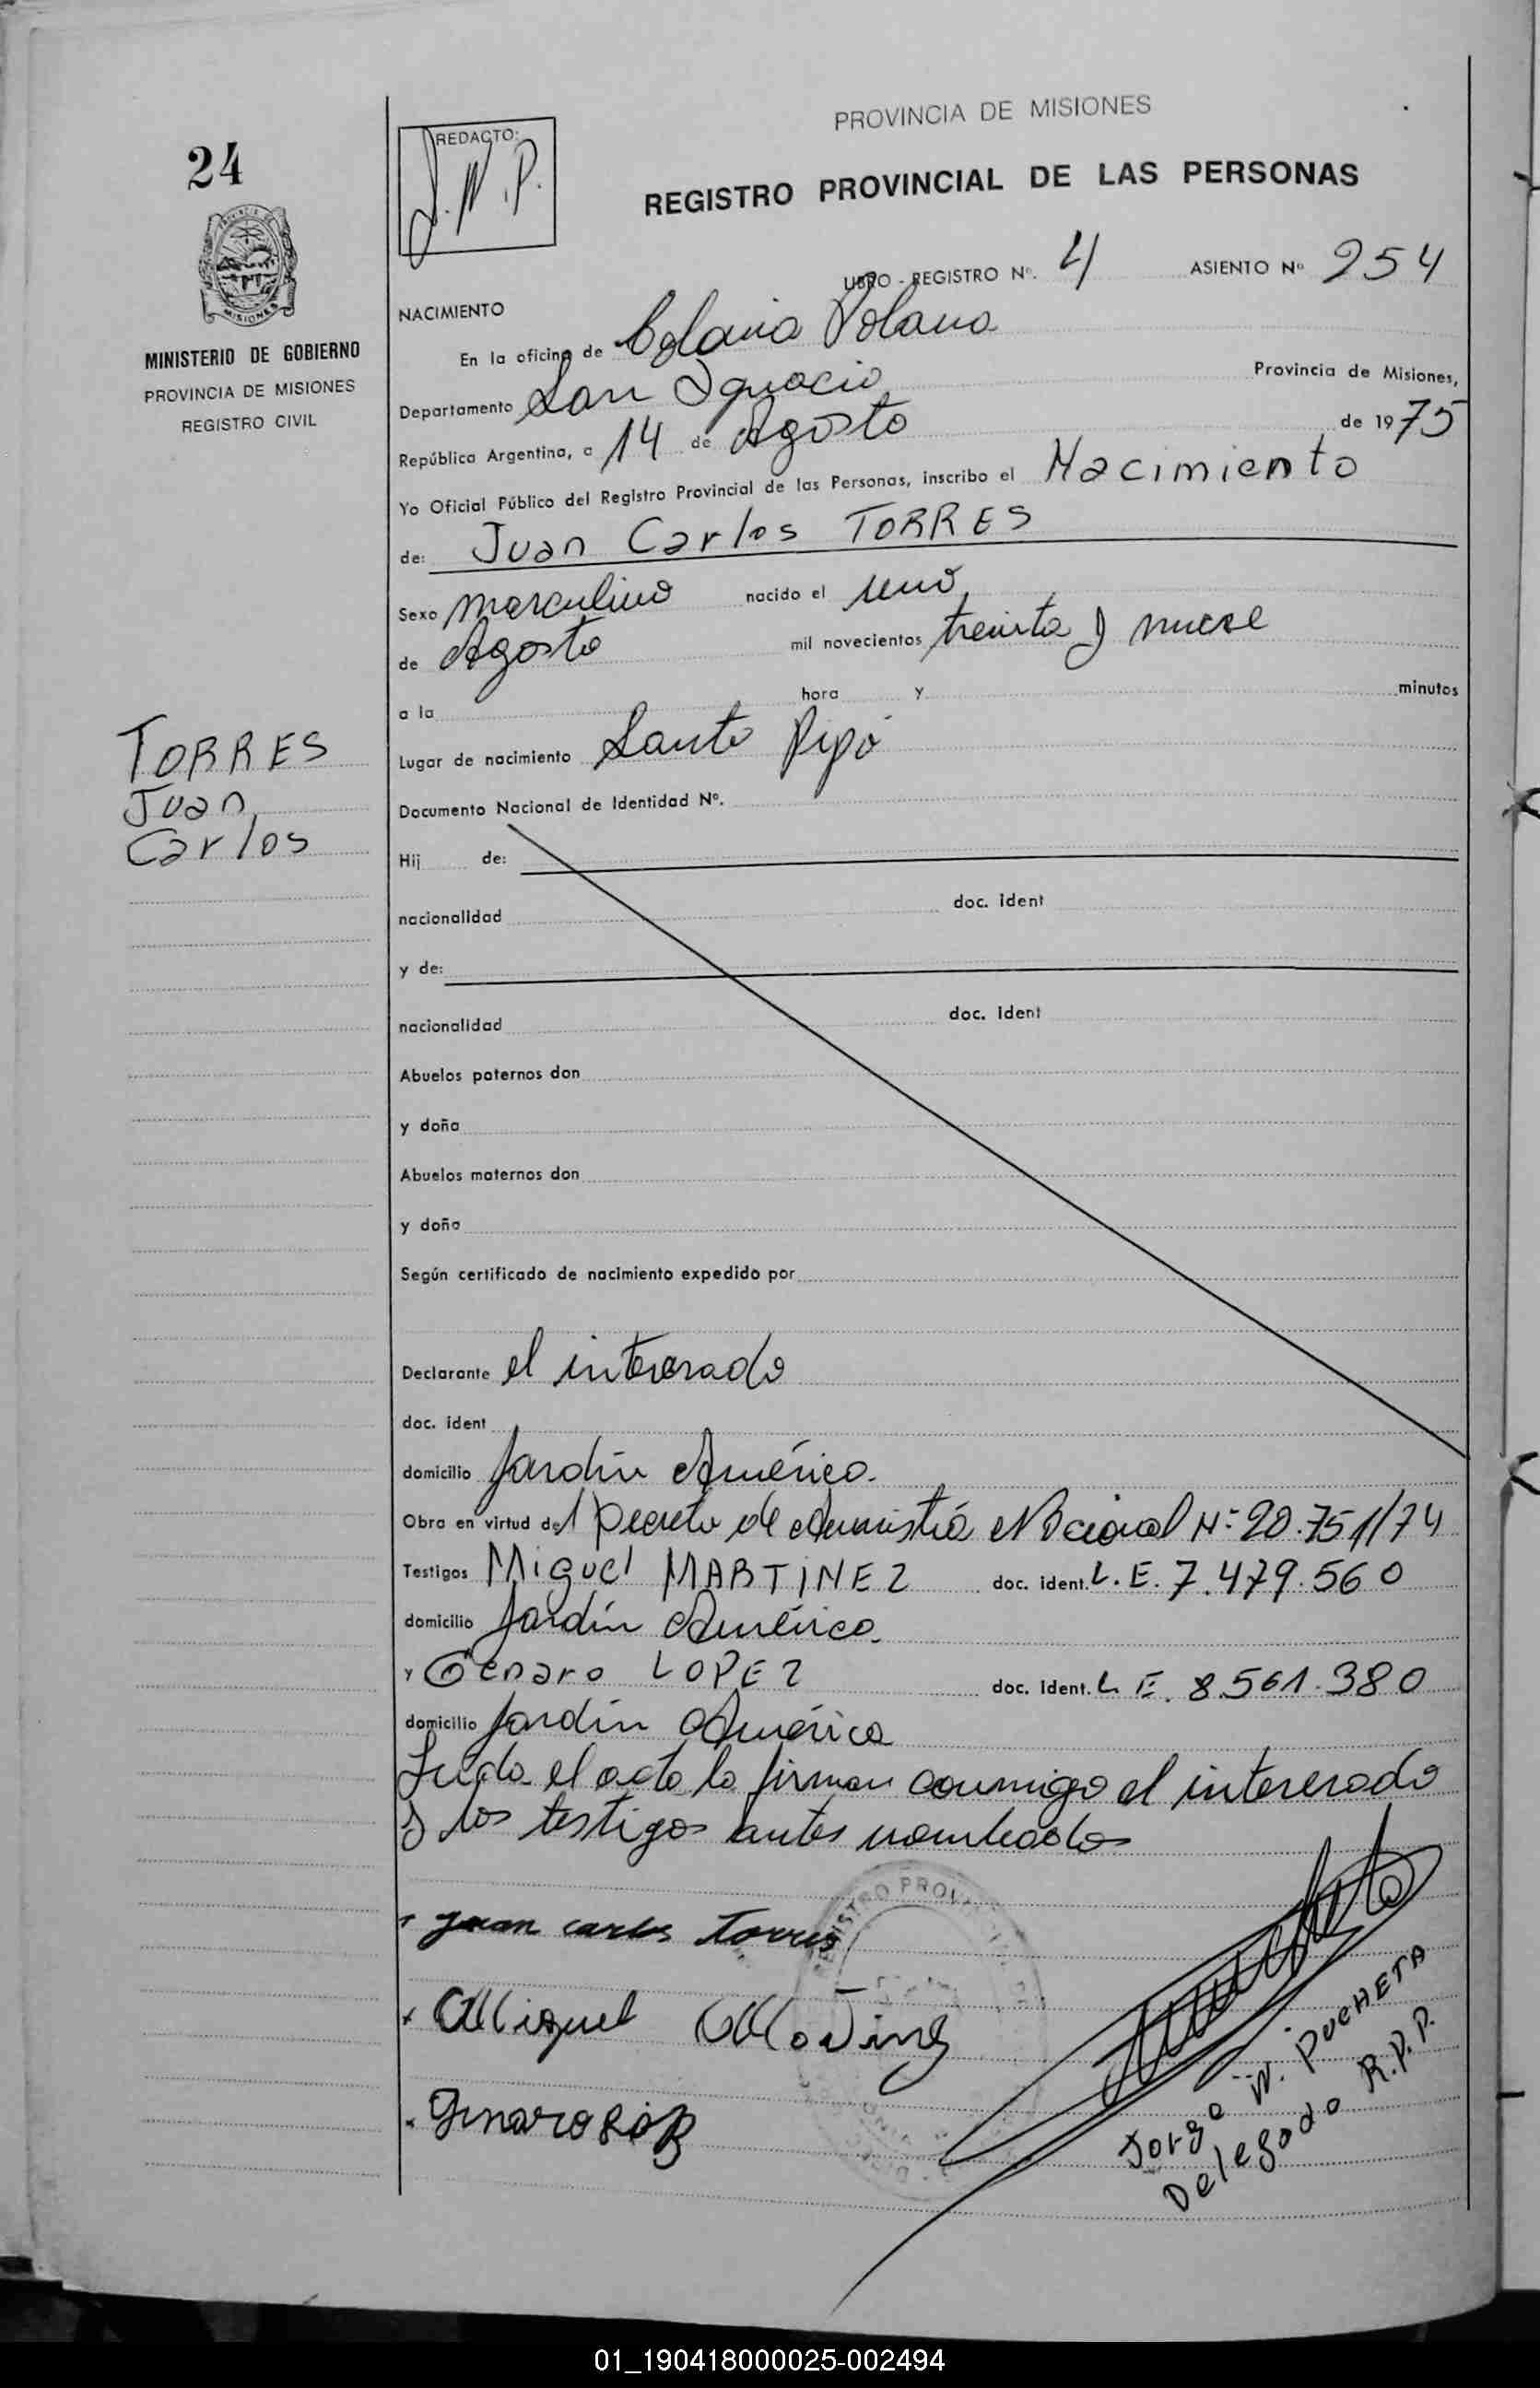 24
MINISTERIO DE GOBIERNO
PROVINCIA DE MISIONES
REGISTRO CIVIL
TORRES
Juan
Carlos
REDACTO:
J.W.P.
PROVINCIA DE MISIONES
REGISTRO PROVINCIAL DE LAS PERSONAS
LIBRO - REGISTRO Nº. 4 ASIENTO Nº 254
NACIMIENTO
En la oficina de Colonia Polana
Departamento San Ignacio Provincia de Misiones,
República Argentina, a 14 de Agosto de 1975
Yo Oficial Público del Registro Provincial de las Personas, inscribo el Nacimiento
de: Juan Carlos TORRES
Sexo masculino nacido el uno
de Agosto mil novecientos treinta y nueve
a la hora y minutos
Lugar de nacimiento Santo Pipó
Documento Nacional de Identidad Nº.
Hij de:
nacionalidad doc. ident
y de:
nacionalidad doc. ident
Abuelos paternos don
y doña
Abuelos maternos don
y doña
Según certificado de nacimiento expedido por
Declarante el interesado
doc. ident
domicilio Jardín América.
Obra en virtud del Decreto de Amnistía Nacional Nº 20.751/74
Testigos Miguel MARTINEZ doc. ident. L.E. 7.479.560
domicilio Jardín América.
y Genaro LOPEZ doc. ident. L.E. 8.561.380
domicilio Jardín América
Leída el acta la firman conmigo el interesado
y los testigos antes nombrados
Juan carlos Torres
Miguel
REGISTRO PROVI
Jorge W. PUCHETA
Delegado R.P.P.
01_190418000025-002494